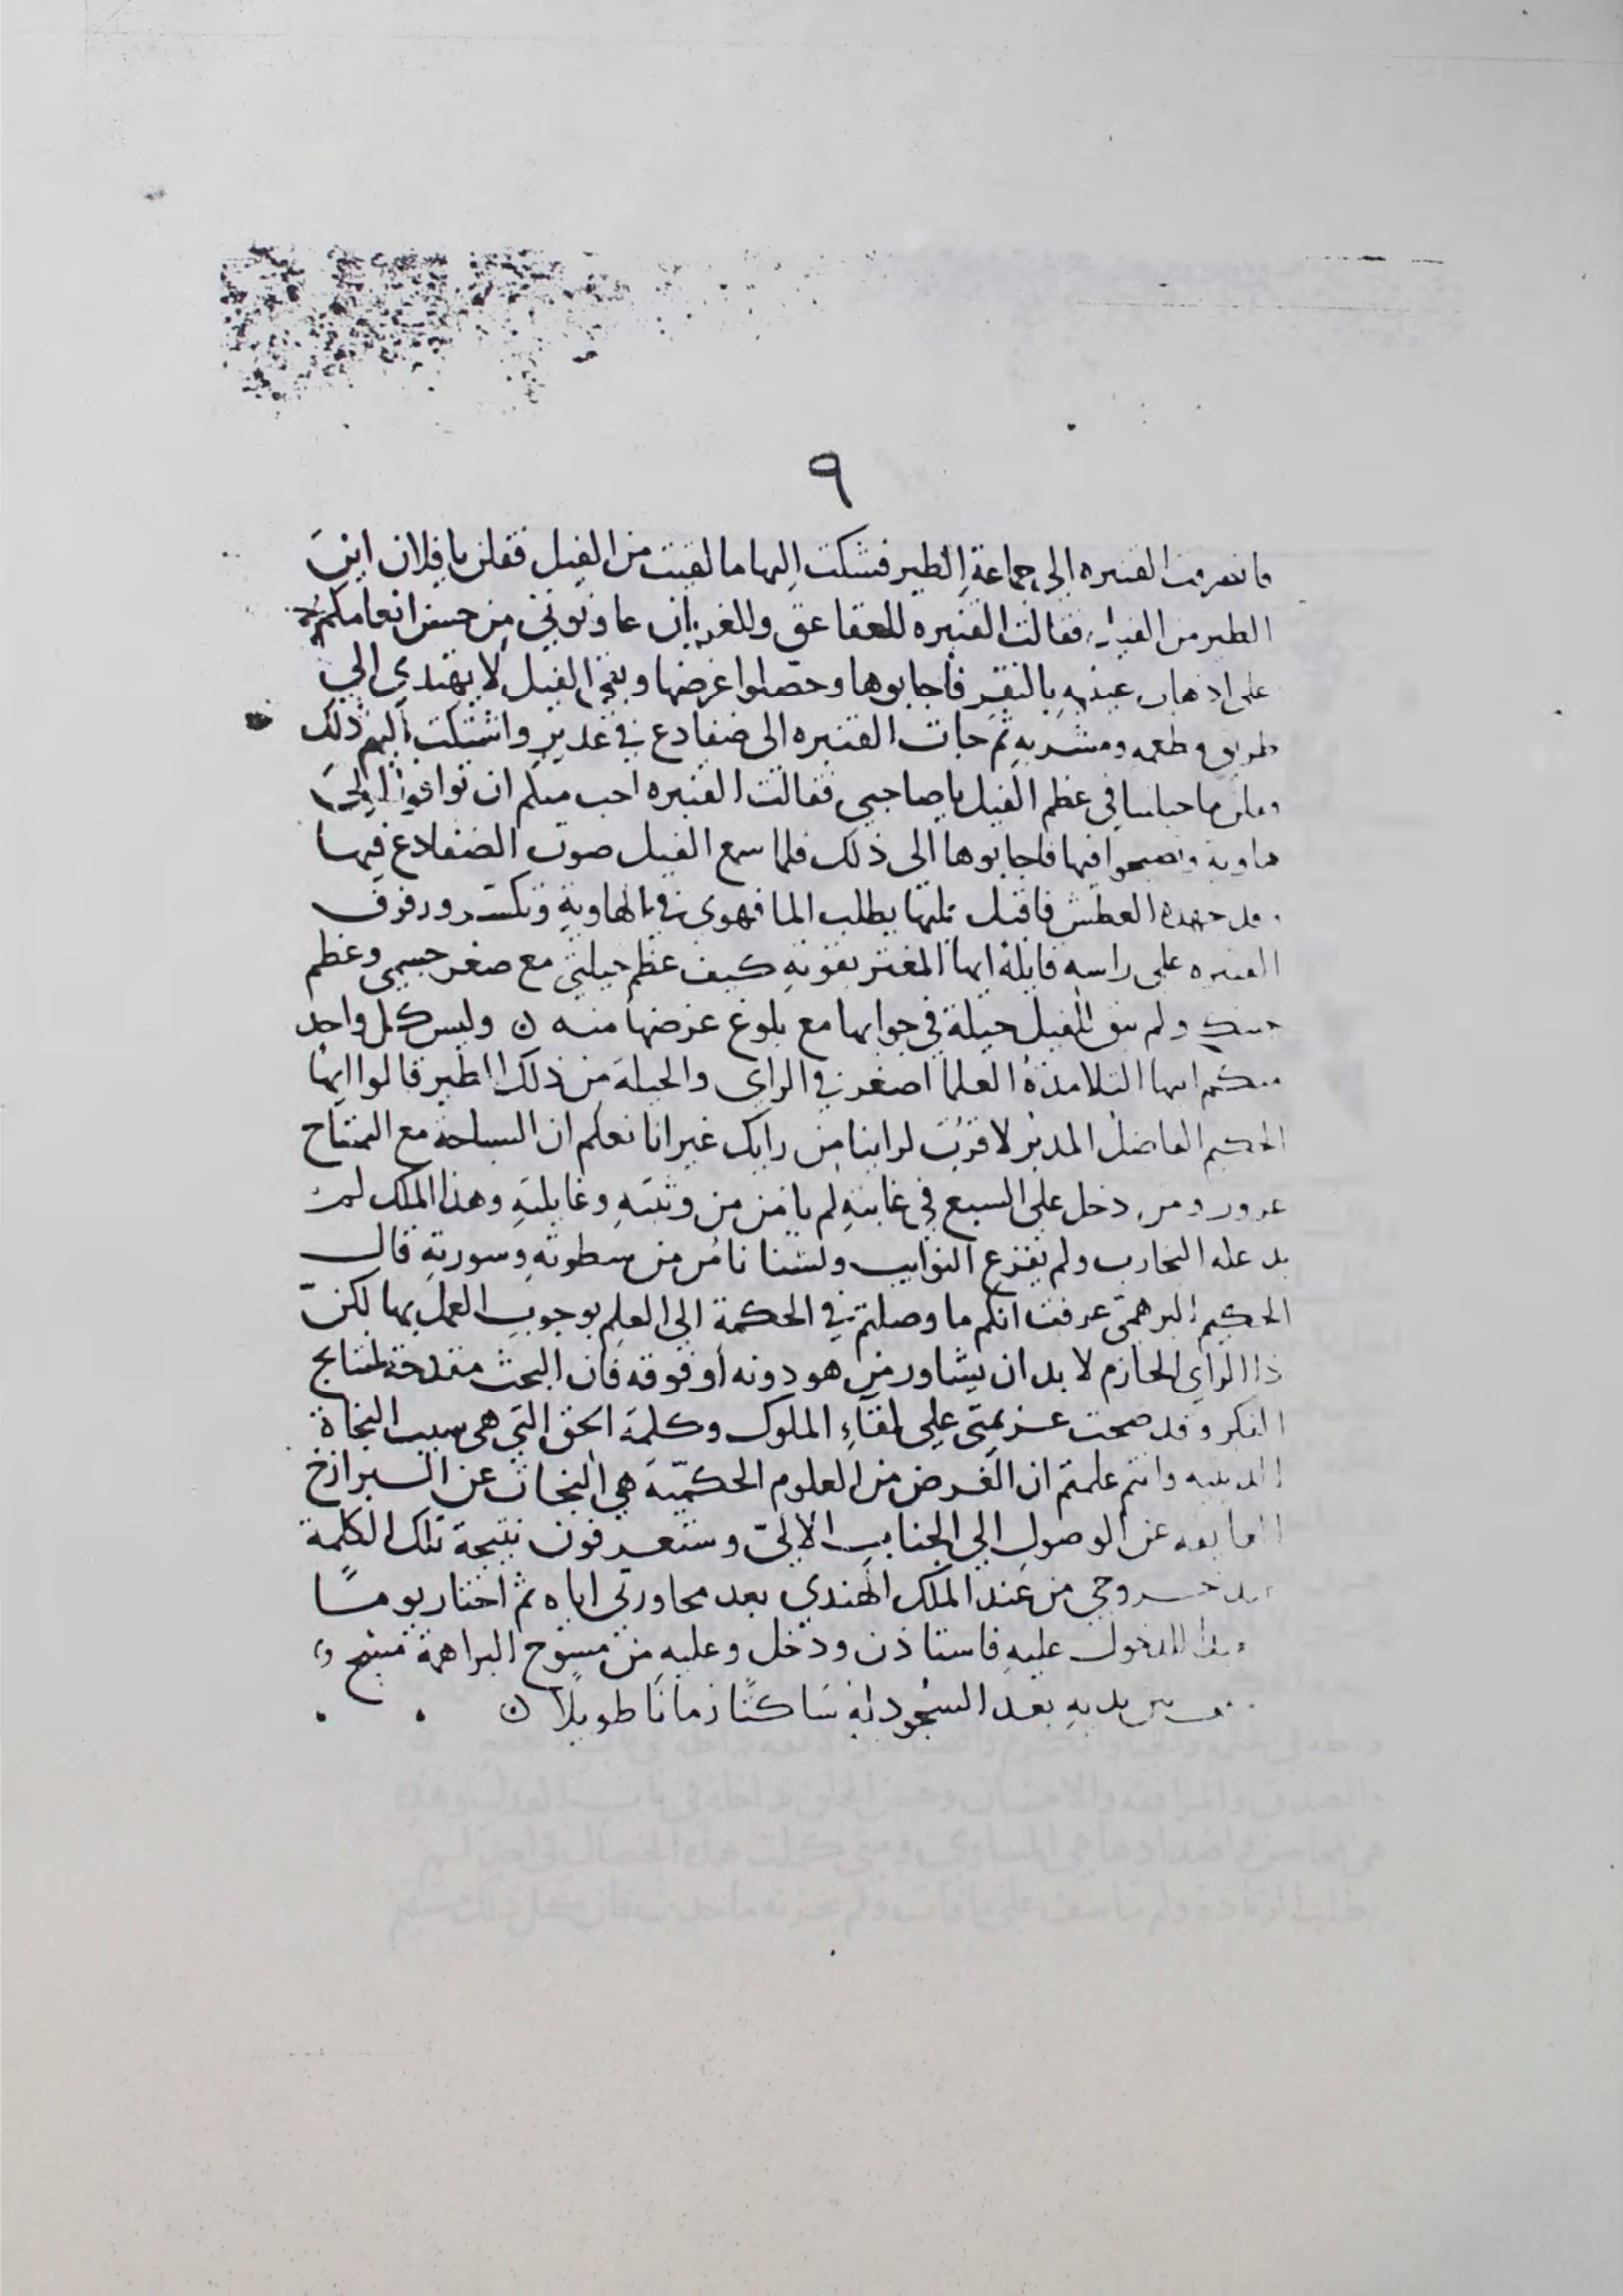 ٩
فانصرفت القنبره الى جماعة الطير فشكت اليها ما لقيت من الفيل فقلن يا فلان اين
الطير من الفيل فقالت القنبره للعقاعق وللغربان عاونوني من حسن انعامكم
على اذهاب عينيه بالنقر فاجابوها وحصلوا غرضها وبقي الفيل لا يهتدي الى
طريق مطعمه ومشربه ثم جات القنبره الى ضفادع في غدير واشتكت اليهم ذلك
وقلن ما حيلتنا في عظم الفيل يا صاحبي فقالت القنبره احب منكم ان توافوا الى
هاوية وتصيحوا فيها فاجابوها الى ذلك فلما سمع الفيل صوت الضفادع فيها
وقد جهده العطش فاقبل تليها يطلب الما فهوى في الهاوية وتكسر ورفرف
القنبره على راسه قايلة ايها المغتر بقوته كيف عظم حيلتي مع صغر جسمي وعظم
جسمك ولم يبق للفيل حيلة في جوابها مع بلوغ غرضها منه ن وليس كل واحد
منكم ايها التلامذة العلما اصغر في الراى والحيلة من ذلك الطير قالوا ايها
الحكيم الفاضل المدبر لا قرب لراينا من رايك غير انا نعلم ان السباحة مع التمساح
غرور ومن دخل على السبع في غابته لم يامن من وثبته وغايلته وهذا الملك لم
عله التجارب ولم تفزع النوايب ولسنا نامن من سطوته وسورته قال
الحكيم البرهمي عرفت انكم ما وصلتم في الحكمة الى العلم بوجوب العمل بها لكن
ذا الراي الحازم لا بد ان يشاور من هو دونه او فوقه فان البحث مقدحة لنتايج
الفكر وقد صحت عزيمتى على لقاء الملوك وكلمة الحق التي هي سبب النجاة
وانتم علمتم ان الغرض من العلوم الحكمية هي النجاة عن البرازخ
المانعه عن الوصول الى الجناب الالهي وستعرفون نتيجة تلك الكلمة
بعد خروجي من عند الملك الهندي بعد محاورتي اياه ثم اختار يومًا
للدخول عليه فاستاذن ودخل وعليه من مسوح البراهمة مسح و
بين يديه بعد السجود له ساكتًا زمانا طويلًا ن